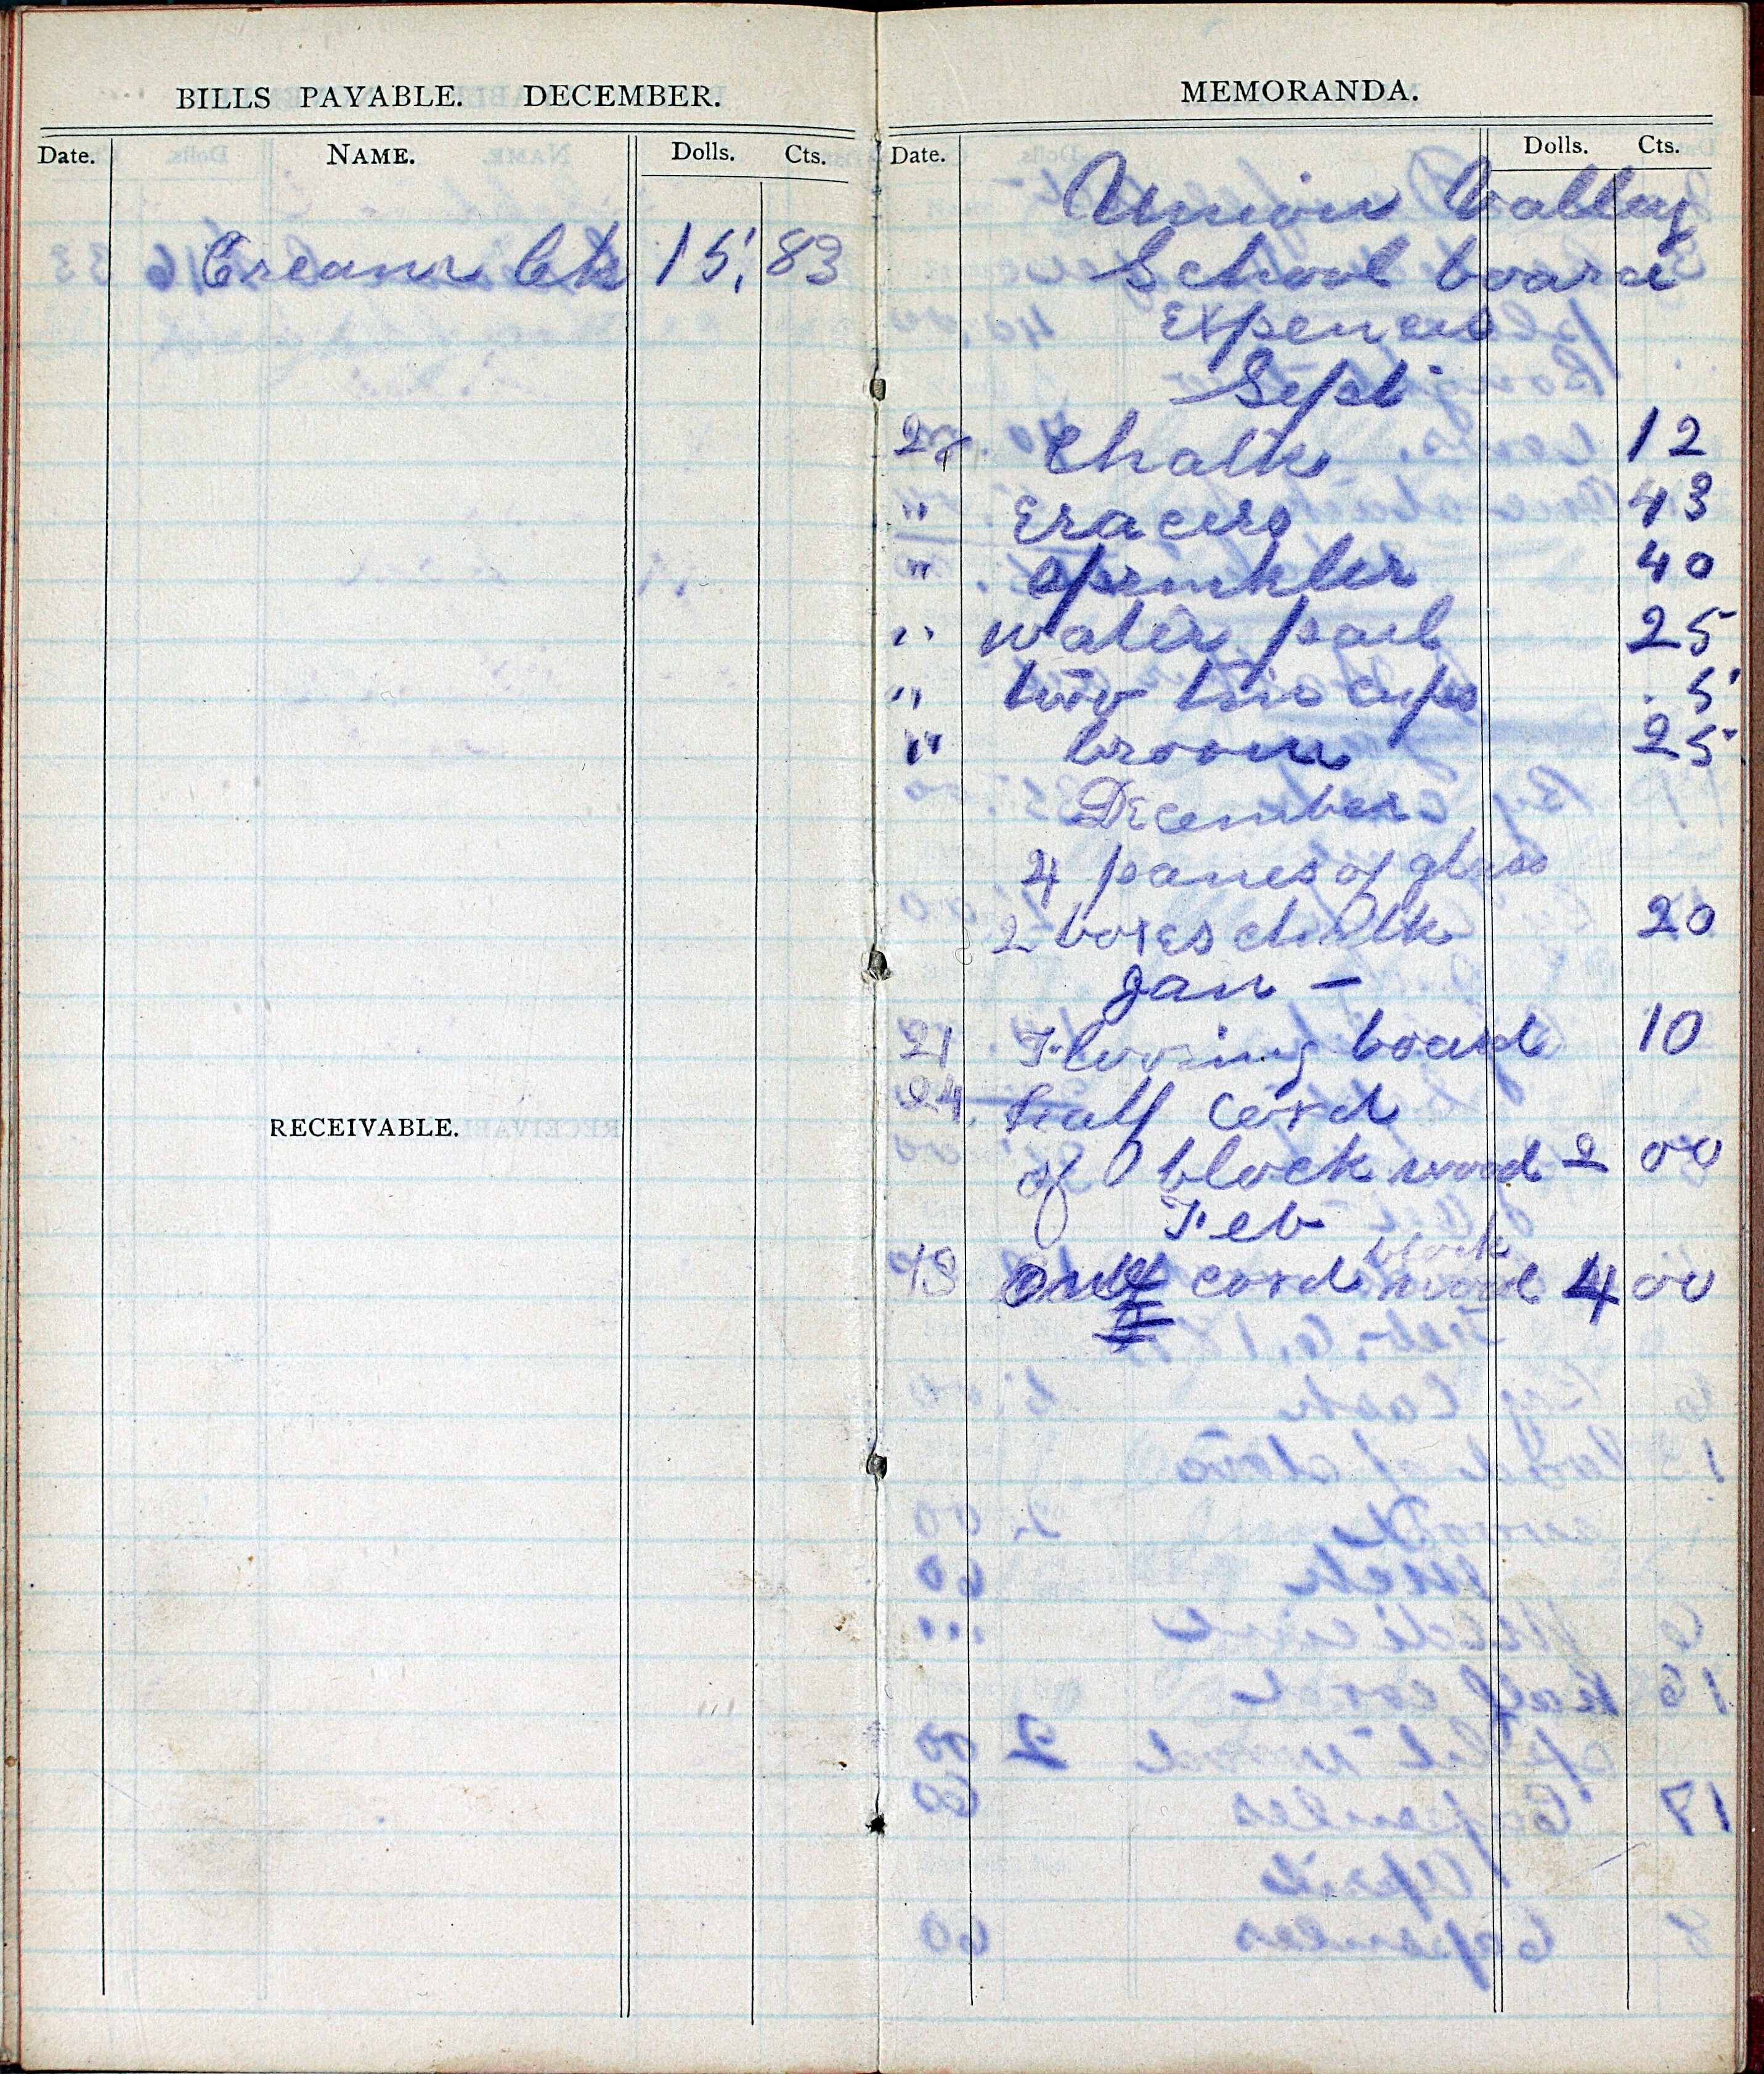 BILLS PAYABLE. DECEMBER.
Date. NAME. Dolls. Cts.
Cream Ck 15. 83
RECEIVABLE.
MEMORANDA.
Date. Dolls. Cts.
Union Valley
School board
Expences
Sept
27 Chalk 12
" Eracers 43
" sprinkler 40
" water pail 25
" two tin cups 5
" broom 25
December
4 panes of glass
2 boxes chalk 20
Jan —
21 Floring board 10
24 half cord
of block wood 2 00
Feb
block
13 one cord wood 4 00